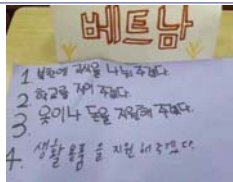 베트남
1. 빈민에 식량을 나눠 주겠다.
2. 학교를 지어 주겠다.
3. 옷이나 돈을 지원해 주겠다.
4. 생활용품을 지원해주겠다.